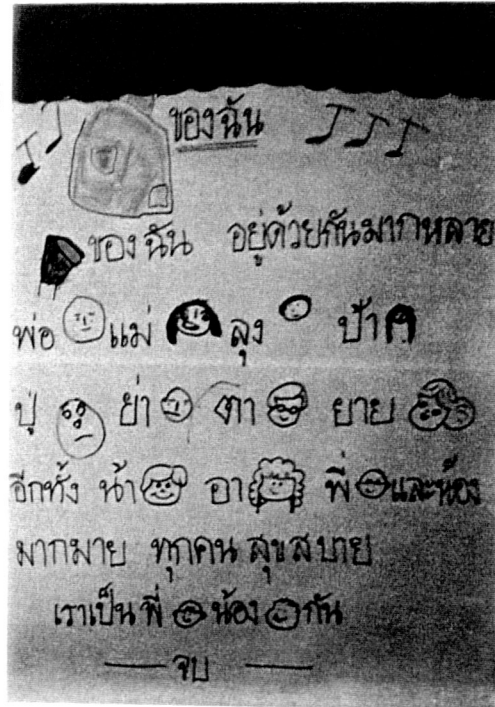 ของฉัน
ของฉัน อยู่ด้วยกันมากหลาย
พ่อ แม่ ลุง ป้า
ปู่ ย่า ตา ยาย
อีกทั้ง น้า อา พี่ และน้อง
มากมาย ทุกคน สุขสบาย
เราเป็น พี่ น้อง กัน
จบ